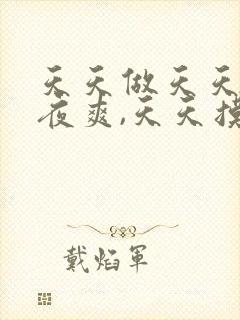 天天做天天
夜爽,天天摸
戴焰軍